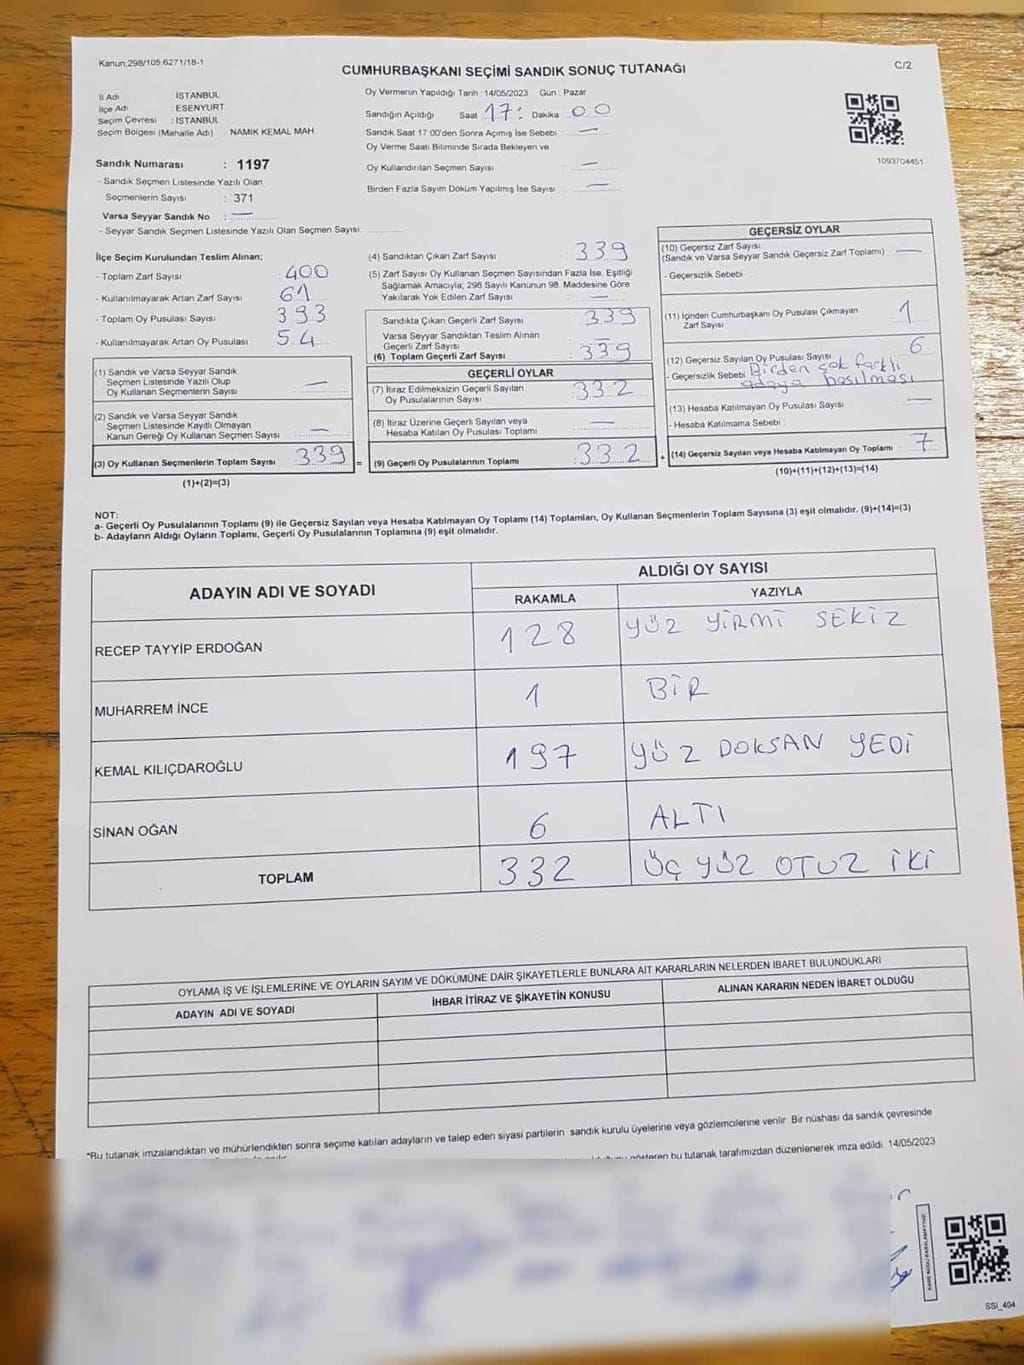 Kanun;298/105,6271/18-1
C/2
CUMHURBAŞKANI SEÇİMİ SANDIK SONUÇ TUTANAĞI
İl Adı : İSTANBUL
İlçe Adı : ESENYURT
Seçim Çevresi : İSTANBUL
Seçim Bölgesi (Mahalle Adı) : NAMIK KEMAL MAH
Sandık Numarası : 1197
- Sandık Seçmen Listesinde Yazılı Olan
Seçmenlerin Sayısı : 371
Varsa Seyyar Sandık No : —
- Seyyar Sandık Seçmen Listesinde Yazılı Olan Seçmen Sayısı:
Oy Vermenin Yapıldığı Tarih : 14/05/2023 Gün : Pazar
Sandığın Açıldığı Saat 17: Dakika 00
Sandık Saat 17:00'den Sonra Açımış İse Sebebi : —
Oy Verme Saati Bitiminde Sırada Bekleyen ve
Oy Kullandırılan Seçmen Sayısı : —
Birden Fazla Sayım Döküm Yapılmış İse Sayısı : —
1093704451
İlçe Seçim Kurulundan Teslim Alınan;
- Toplam Zarf Sayısı : 400
- Kullanılmayarak Artan Zarf Sayısı : 61
- Toplam Oy Pusulası Sayısı : 393
- Kullanılmayarak Artan Oy Pusulası : 54
(1) Sandık ve Varsa Seyyar Sandık
Seçmen Listesinde Yazılı Olup
Oy Kullanan Seçmenlerin Sayısı : —
(2) Sandık ve Varsa Seyyar Sandık
Seçmen Listesinde Kayıtlı Olmayan
Kanun Gereği Oy Kullanan Seçmen Sayısı : —
(3) Oy Kullanan Seçmenlerin Toplam Sayısı : 339 =
(1)+(2)=(3)
(4) Sandıktan Çıkan Zarf Sayısı : 339
(5) Zarf Sayısı Oy Kullanan Seçmen Sayısından Fazla İse, Eşitliği
Sağlamak Amacıyla; 298 Sayılı Kanunun 98. Maddesine Göre
Yakılarak Yok Edilen Zarf Sayısı : —
Sandıkta Çıkan Geçerli Zarf Sayısı : 339
Varsa Seyyar Sandıktan Teslim Alınan
Geçerli Zarf Sayısı : —
(6) Toplam Geçerli Zarf Sayısı : 339
GEÇERLİ OYLAR
(7) İtiraz Edilmeksizin Geçerli Sayılan
Oy Pusulalarının Sayısı : 332
(8) İtiraz Üzerine Geçerli Sayılan veya
Hesaba Katılan Oy Pusulası Toplamı : —
(9) Geçerli Oy Pusulalarının Toplamı : 332 +
GEÇERSİZ OYLAR
(10) Geçersiz Zarf Sayısı
(Sandık ve Varsa Seyyar Sandık Geçersiz Zarf Toplamı) : —
- Geçersizlik Sebebi :
(11) İçinden Cumhurbaşkanı Oy Pusulası Çıkmayan
Zarf Sayısı : 1
(12) Geçersiz Sayılan Oy Pusulası Sayısı : 6
- Geçersizlik Sebebi : Birden çok farklı
adaya basılması
(13) Hesaba Katılmayan Oy Pusulası Sayısı : —
- Hesaba Katılmama Sebebi :
(14) Geçersiz Sayılan veya Hesaba Katılmayan Oy Toplamı : 7
(10)+(11)+(12)+(13)=(14)
NOT:
a- Geçerli Oy Pusulalarının Toplamı (9) ile Geçersiz Sayılan veya Hesaba Katılmayan Oy Toplamı (14) Toplamları, Oy Kullanan Seçmenlerin Toplam Sayısına (3) eşit olmalıdır. (9)+(14)=(3)
b- Adayların Aldığı Oyların Toplamı, Geçerli Oy Pusulalarının Toplamına (9) eşit olmalıdır.
ADAYIN ADI VE SOYADI
ALDIĞI OY SAYISI
RAKAMLA YAZIYLA
RECEP TAYYİP ERDOĞAN 128 YÜZ YİRMİ SEKİZ
MUHARREM İNCE 1 BİR
KEMAL KILIÇDAROĞLU 197 YÜZ DOKSAN YEDİ
SİNAN OĞAN 6 ALTI
TOPLAM 332 ÜÇ YÜZ OTUZ İKİ
OYLAMA İŞ VE İŞLEMLERİNE VE OYLARIN SAYIM VE DÖKÜMÜNE DAİR ŞİKAYETLERLE BUNLARA AİT KARARLARIN NELERDEN İBARET BULUNDUKLARI
ADAYIN ADI VE SOYADI İHBAR İTİRAZ VE ŞİKAYETİN KONUSU ALINAN KARARIN NEDEN İBARET OLDUĞU
*Bu tutanak imzalandıktan ve mühürlendikten sonra seçime katılan adayların ve talep eden siyasi partilerin sandık kurulu üyelerine veya gözlemcilerine verilir. Bir nüshası da sandık çevresinde
gösteren bu tutanak tarafımızdan düzenlenerek imza edildi. 14/05/2023
KARE KODU KARALAMAYINIZ!
SSI_404